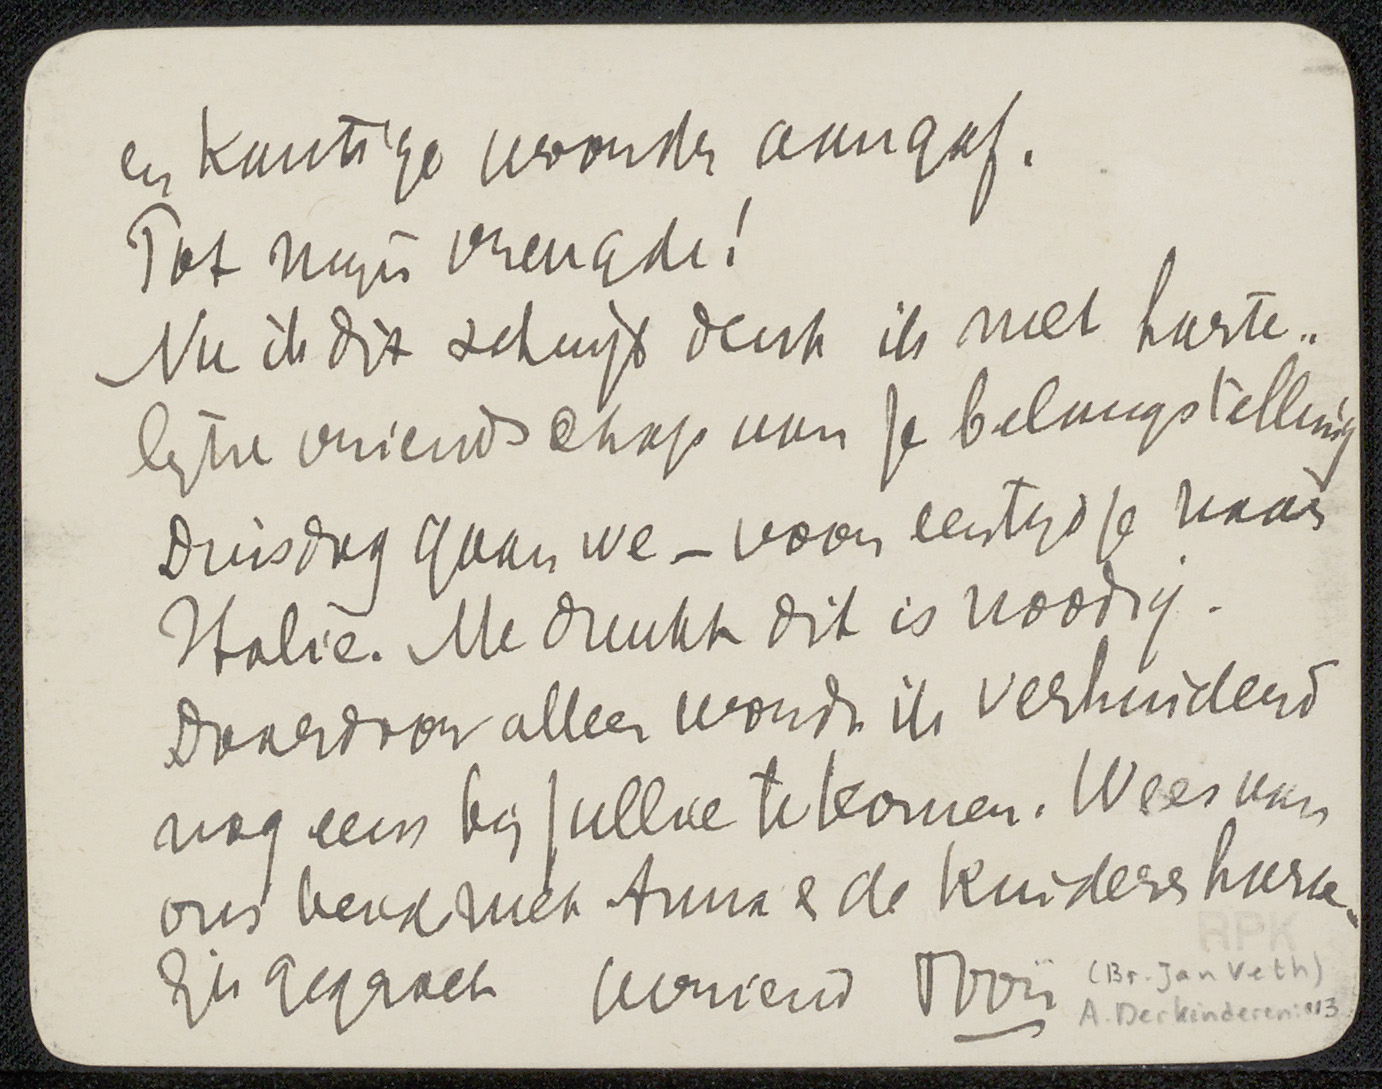 en kantige woorden aangaf.
Tot mijn vreugde!
Nu ik dit schrijf denk ik met harte„
lijke vriendschap aan je belangstelling
Dinsdag gaan we – voor een tijdje naar
Italië. Me dunkt dit is noodig.
Daardoor alleen wordt ik verhinderd
nog eens bij jullie te komen. Wees van
ons beid met Anna & de kinderen harte„
lijk gegroet vriend
RPK
(Br. Jan Veth)
A. Derkinderen: 13